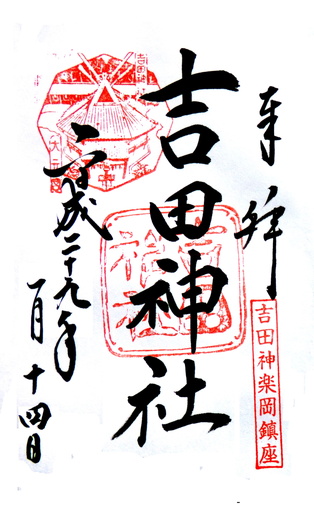 奉拝
吉田神楽岡鎮座
吉田神社
平成二十九年
一月十四日